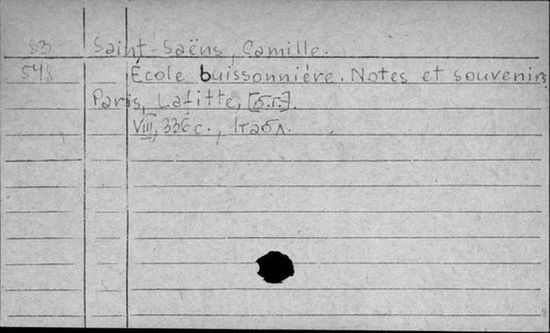 83 Saint-Saëns, Camille.
548 École buissonnière. Notes et souvenirs
Paris, Lafitte, [б.г.].
VIII, 336 с., 1 табл.